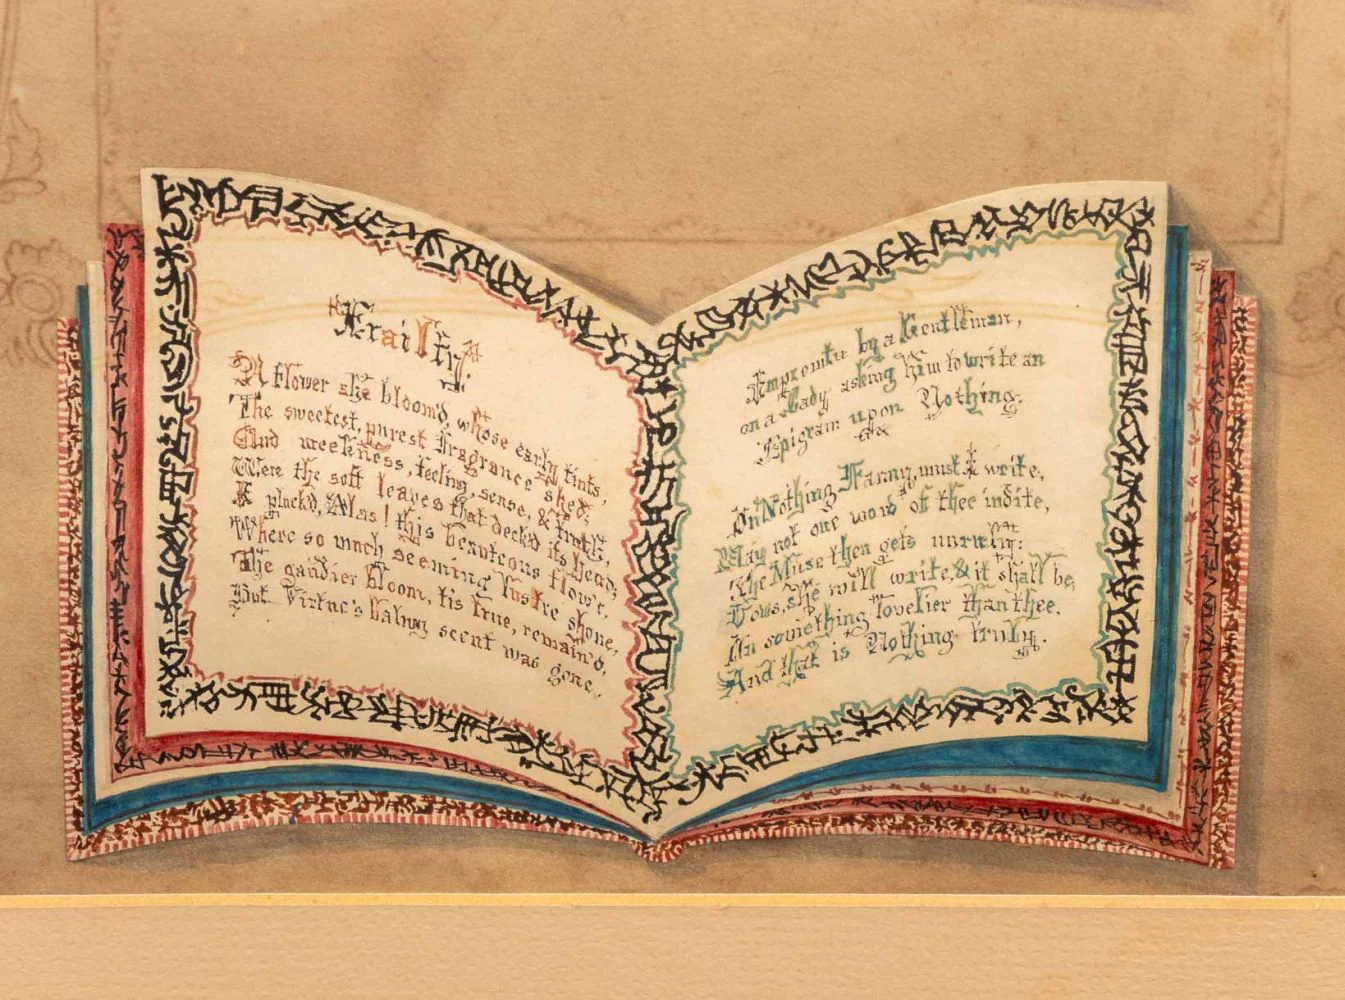 Frailty.
A flower she bloom'd, whose early tints,
The sweetest, purest fragrance shed;
And meekness, feeling, sense, & truth,
Were the soft leaves that deck'd its head;
I pluck'd, Alas! this beauteous flow'r,
Where so much seeming lustre shone,
The gaudier bloom, tis true, remain'd,
But Virtue's balmy scent was gone.
Impromtu by a Gentleman,
on a Lady asking him to write an
Epigram upon Nothing.
On Nothing, Fanny, must I write,
May not one word of thee indite,
The Muse then gets unruly:
Vows, she will write, & it shall be,
On something lovelier than thee.
And that is Nothing truly.